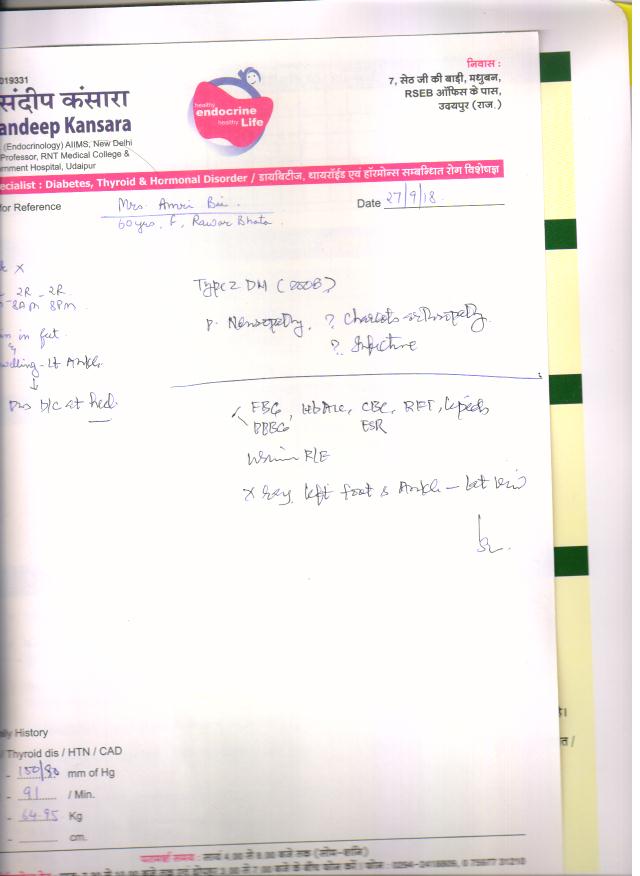 019331
संदीप कंसारा
andeep Kansara
(Endocrinology) AIIMS, New Delhi
Professor, RNT Medical College &
rnment Hospital, Udaipur
healthy
endocrine
healthy Life
निवास :
7, सेठ जी की बाड़ी, मधुबन,
RSEB ऑफिस के पास,
उदयपुर (राज.)
ecialist : Diabetes, Thyroid & Hormonal Disorder / डायबिटीज, थायरॉईड एवं हॉरमोन्स सम्बन्धित रोग विशेषज्ञ
for Reference
Mrs. Amri Bai.
Date 27/9/18
60yrs, F, Rawat Bhata
x
2R - 2R
8AM 8PM
in feet
welling - Lt Ankle
↓
D/C at heel
Type 2 DM (2008)
Neuropathy, ? Charcots arthropathy
?
FBG, HbA1c, CBC, RFT, Lipids
PPBG ESR
Urine R/E
X ray left foot & Ankle - Lat view
ly History
/ Thyroid dis / HTN / CAD
- 150/90 mm of Hg
- 91 / Min.
- 64.95 Kg
- cm.
परामर्श समय : सायं 4.00 से 8.00 बजे तक (सोम-शनि)